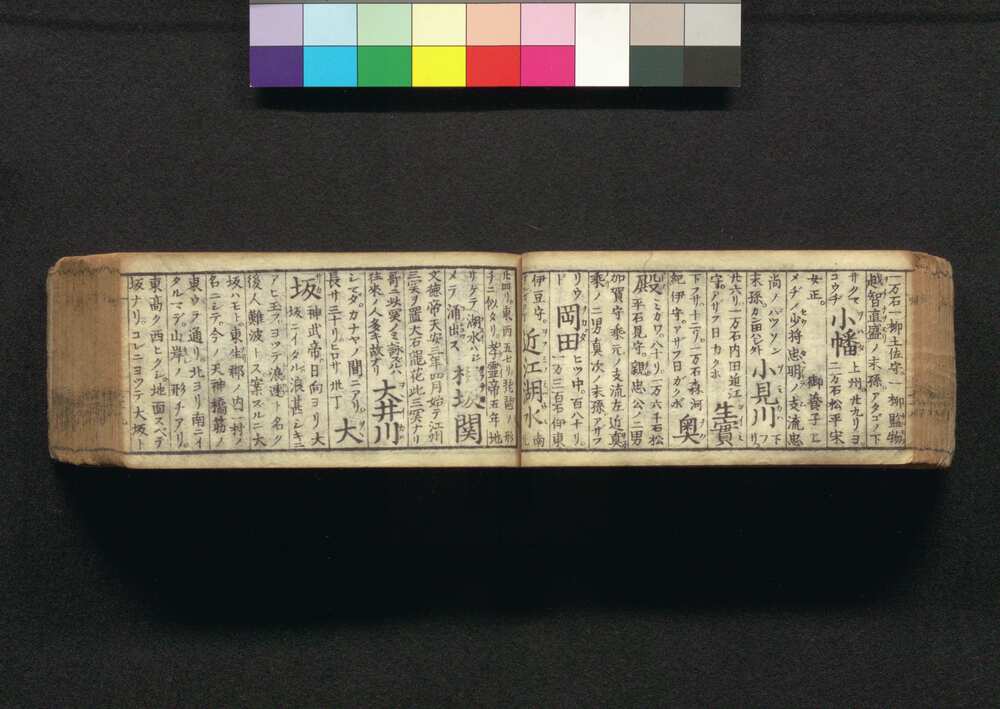 一万石一柳土佐守一柳監物
越智直盛ノ末孫アタゴノ下
サクマ 小幡 上州 廿九リヨ
コウヂ 二万石松平宋
女正 御養子ヒ
メヂノ少将忠明ノ支流忠
尚ノハツソン 小見川 下
末孫カニ田ハシ外
廿六リ一万石内田近江
守アサフ日カクホ 生實
下フサ十二リ一万石森河
紀伊守アサフ日カクボ 奥
殿 ミカワ八十リ一万六千石松
平石見守親忠公ノ二男
加賀守乗元ノ支流左近真
乗ノ二男真次ノ末孫アサフ
リウド 岡田 ヒツ中百八十リ
一万三百石伊東
伊豆守 近江湖水 南
北四リ東西五七リ琵琶ノ形
チニ似タリ孝霊帝五年地
サケテ湖水ト
メテ涌出ス 関
文徳帝天安元年四月始テ江州
三関ヲ置大石龍花此三関ナリ
哥ニ此関ノミ詠スルハ
往来ノ人多キ故ナリ 大井川
シマダカナヤノ間ニアリ
長サ三十リヒロサ廿丁 大
坂 神武帝日向ヨリ大
坂ニイタル浪甚シキニ
アヒ玉フヨツテ浪速ト名ク
後人難波トス案スルニ大
坂ハモト東生郡ノ内一村ノ
名ニシテ今ノ天神橋筋ノ
東ウラ通リ北ヨリ南ニイ
タルマデ山岸ノ形チアリ
東高ク西ヒクシ地面スベテ
坂ナリコレニヨツテ大坂ト